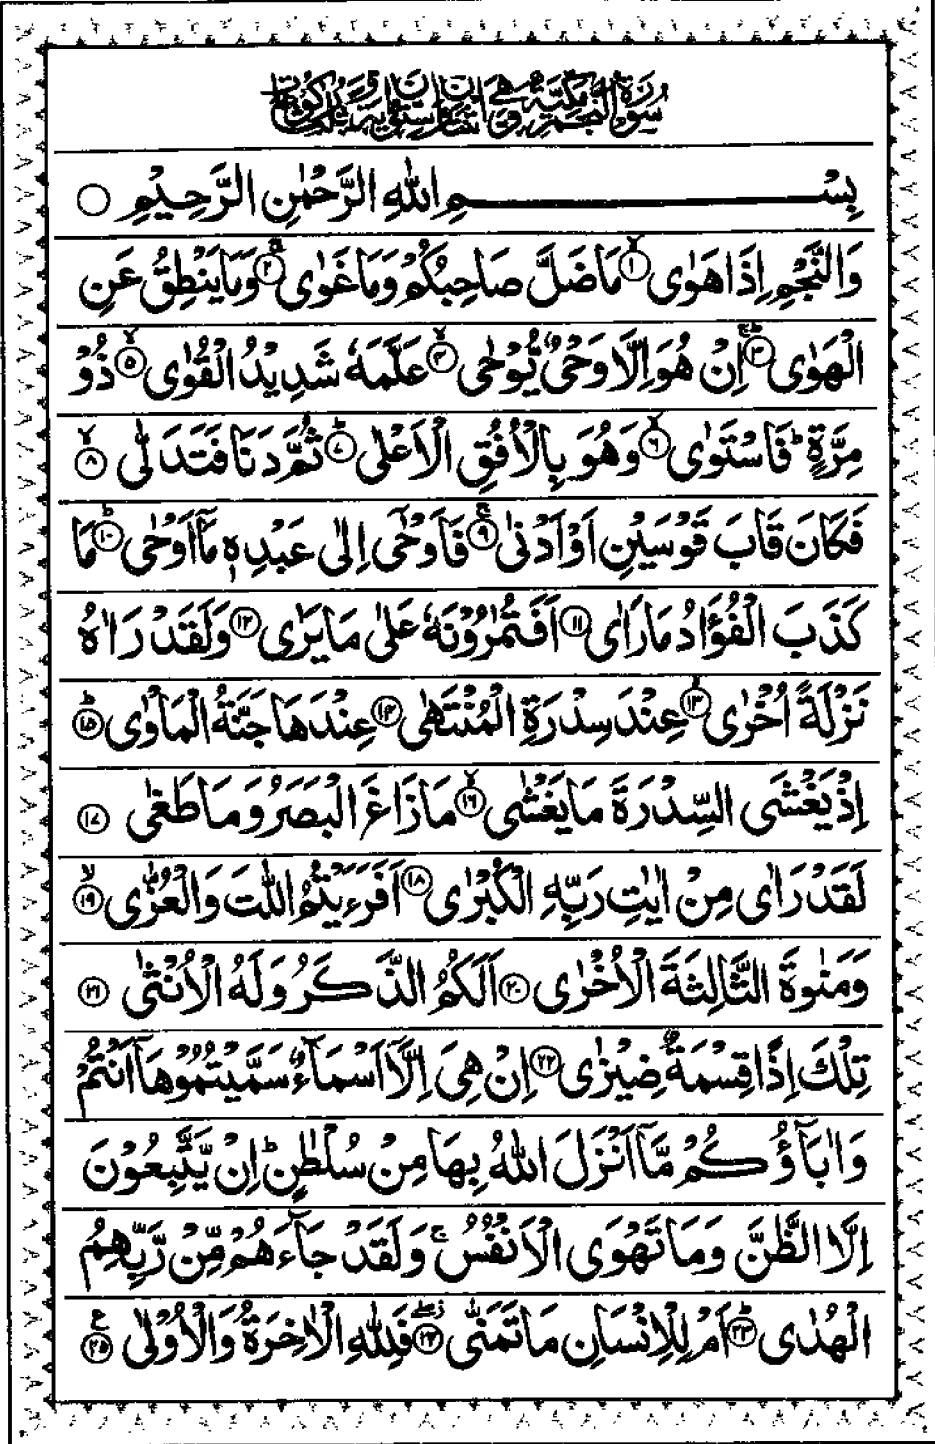 سُوْرَةُ النَّجْمِ مَكِّيَّةٌ وَّهِيَ اثْنَتَانِ وَسِتُّوْنَ اٰيَةً وَّثَلٰثُ رُكُوْعَاتٍ
بِسْمِ اللّٰهِ الرَّحْمٰنِ الرَّحِيْمِ ○
وَالنَّجْمِ اِذَا هَوٰى ۙ﴿١﴾ مَا ضَلَّ صَاحِبُكُمْ وَمَا غَوٰى ۚ﴿٢﴾ وَمَا يَنْطِقُ عَنِ
الْهَوٰى ؕ﴿٣﴾ اِنْ هُوَ اِلَّا وَحْىٌ يُّوْحٰى ۙ﴿٤﴾ عَلَّمَهٗ شَدِيْدُ الْقُوٰى ۙ﴿٥﴾ ذُوْ
مِرَّةٍ ؕ فَاسْتَوٰى ۙ﴿٦﴾ وَهُوَ بِالْاُفُقِ الْاَعْلٰى ؕ﴿٧﴾ ثُمَّ دَنَا فَتَدَلّٰى ۙ﴿٨﴾
فَكَانَ قَابَ قَوْسَيْنِ اَوْ اَدْنٰى ۚ﴿٩﴾ فَاَوْحٰٓى اِلٰى عَبْدِهٖ مَاۤ اَوْحٰى ؕ﴿١٠﴾ مَا
كَذَبَ الْفُؤَادُ مَا رَاٰى ﴿١١﴾ اَفَتُمٰرُوْنَهٗ عَلٰى مَا يَرٰى ﴿١٢﴾ وَلَقَدْ رَاٰهُ
نَزْلَةً اُخْرٰى ۙ﴿١٣﴾ عِنْدَ سِدْرَةِ الْمُنْتَهٰى ﴿١٤﴾ عِنْدَهَا جَنَّةُ الْمَاْوٰى ؕ﴿١٥﴾
اِذْ يَغْشَى السِّدْرَةَ مَا يَغْشٰى ۙ﴿١٦﴾ مَا زَاغَ الْبَصَرُ وَمَا طَغٰى ﴿١٧﴾
لَقَدْ رَاٰى مِنْ اٰيٰتِ رَبِّهِ الْكُبْرٰى ﴿١٨﴾ اَفَرَءَيْتُمُ اللّٰتَ وَالْعُزّٰى ۙ﴿١٩﴾
وَمَنٰوةَ الثَّالِثَةَ الْاُخْرٰى ﴿٢٠﴾ اَلَكُمُ الذَّكَرُ وَلَهُ الْاُنْثٰى ﴿٢١﴾
تِلْكَ اِذًا قِسْمَةٌ ضِيْزٰى ﴿٢٢﴾ اِنْ هِىَ اِلَّاۤ اَسْمَآءٌ سَمَّيْتُمُوْهَاۤ اَنْتُمْ
وَاٰبَآؤُكُمْ مَّاۤ اَنْزَلَ اللّٰهُ بِهَا مِنْ سُلْطٰنٍ ؕ اِنْ يَّتَّبِعُوْنَ
اِلَّا الظَّنَّ وَمَا تَهْوَى الْاَنْفُسُ ۚ وَلَقَدْ جَآءَهُمْ مِّنْ رَّبِّهِمُ
الْهُدٰى ؕ﴿٢٣﴾ اَمْ لِلْاِنْسَانِ مَا تَمَنّٰى ۖ﴿٢٤﴾ فَلِلّٰهِ الْاٰخِرَةُ وَالْاُوْلٰى ﴿٢٥﴾ ع